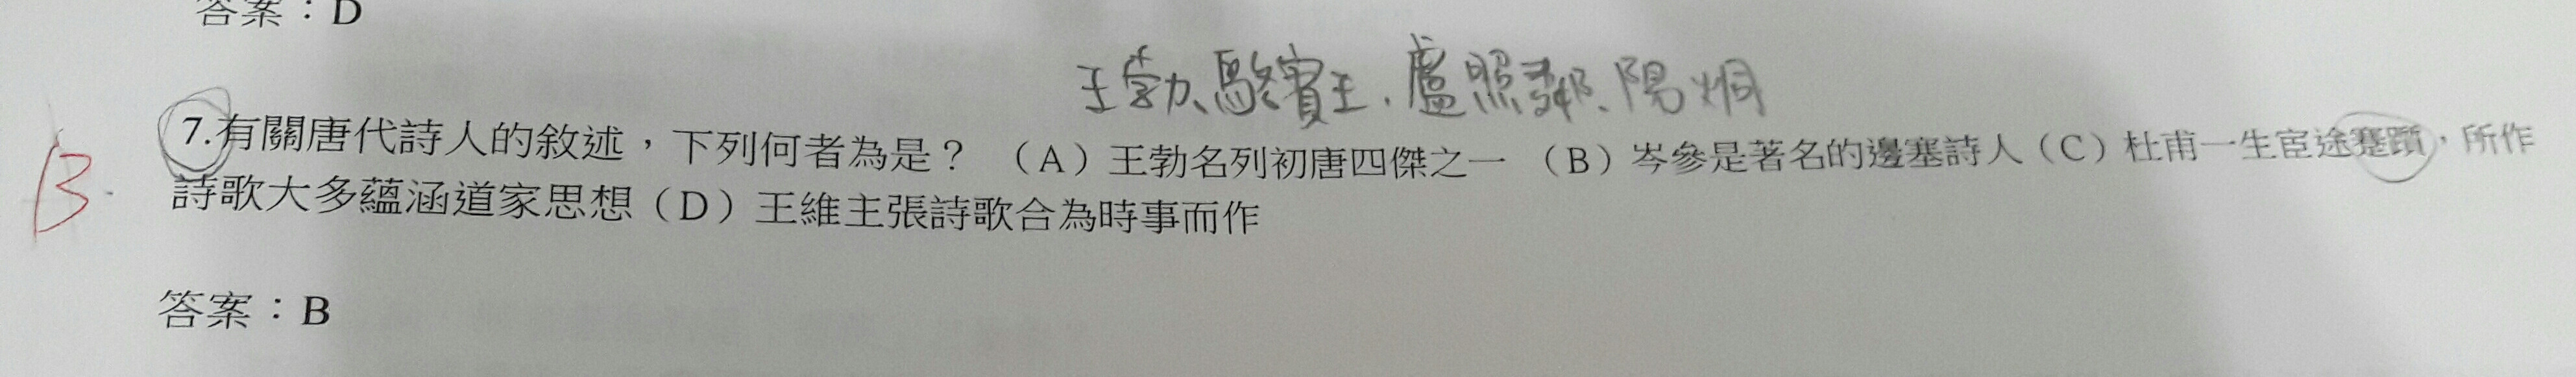 答案：D
王勃、駱賓王、盧照鄰、陽炯
B
7.有關唐代詩人的敘述，下列何者為是？（A）王勃名列初唐四傑之一（B）岑參是著名的邊塞詩人（C）杜甫一生宦途蹇躓，所作
詩歌大多蘊涵道家思想（D）王維主張詩歌合為時事而作
答案：B